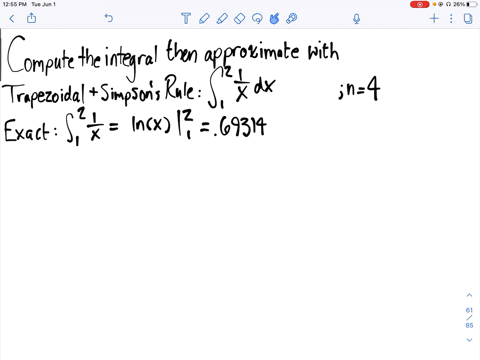 12:55 PM Tue Jun 1 26%
Compute the integral then approximate with
Trapezoidal + Simpson's Rule: ∫₁² 1/x dx ; n=4
Exact: ∫₁² 1/x = ln(x) |₁² = .69314
61
/
85